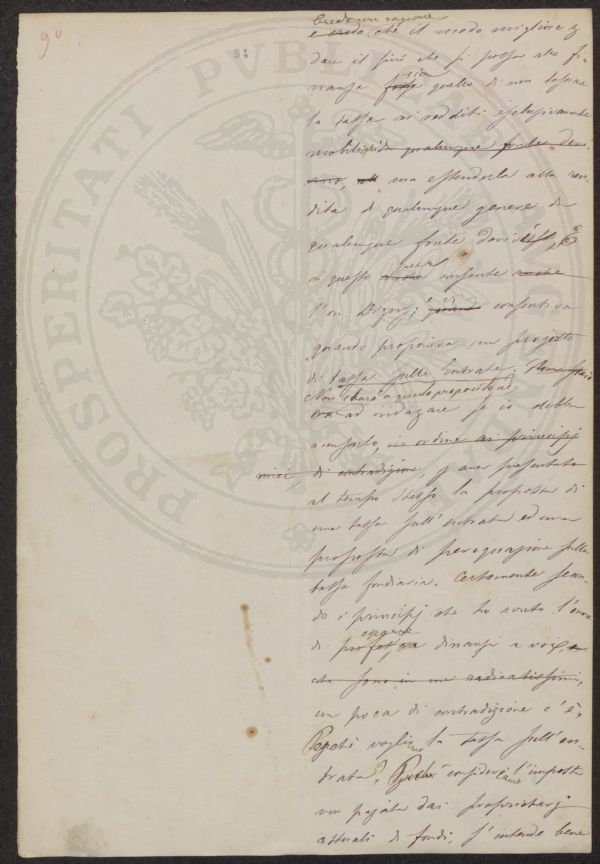 90
94
PROSPERITATI PUBLICAE AUG
Credo con ragione
e credo che il modo migliore p
dare il più che si possa alla fi-
nanza fosse sia quello di non lasciare
la tassa ai redditi esclusivamente
mobiliari da qualunque fonte deri-
vino, ma estenderla alla ren-
dita di qualunque genere di
qualunque fonte derivi. E
in questo consente
l'on. Digny, e vi consentiva
quando proponeva un progetto
di tassa sulle Entrate.
Non starò a questo proposito ad
ora ad indagare se io debba
a conforto, in ordine ai principj
miei, di contradizione, p aver presentato
al tempo stesso la proposta di
una tassa sull'entrata ed una
proposta di perequazione sulla
tassa fondiaria. Certamente secon-
do i principj che ho avuto l'onore
di esporre dinanzi a voi, e
che sono in me radicatissimi,
un poca di contradizione c'è,
Perchè vogliamo la tassa sull'en-
trata? Perchè consideriamo l'imposta
non pagata dai proprietarj
attuali di fondi. S'intende bene